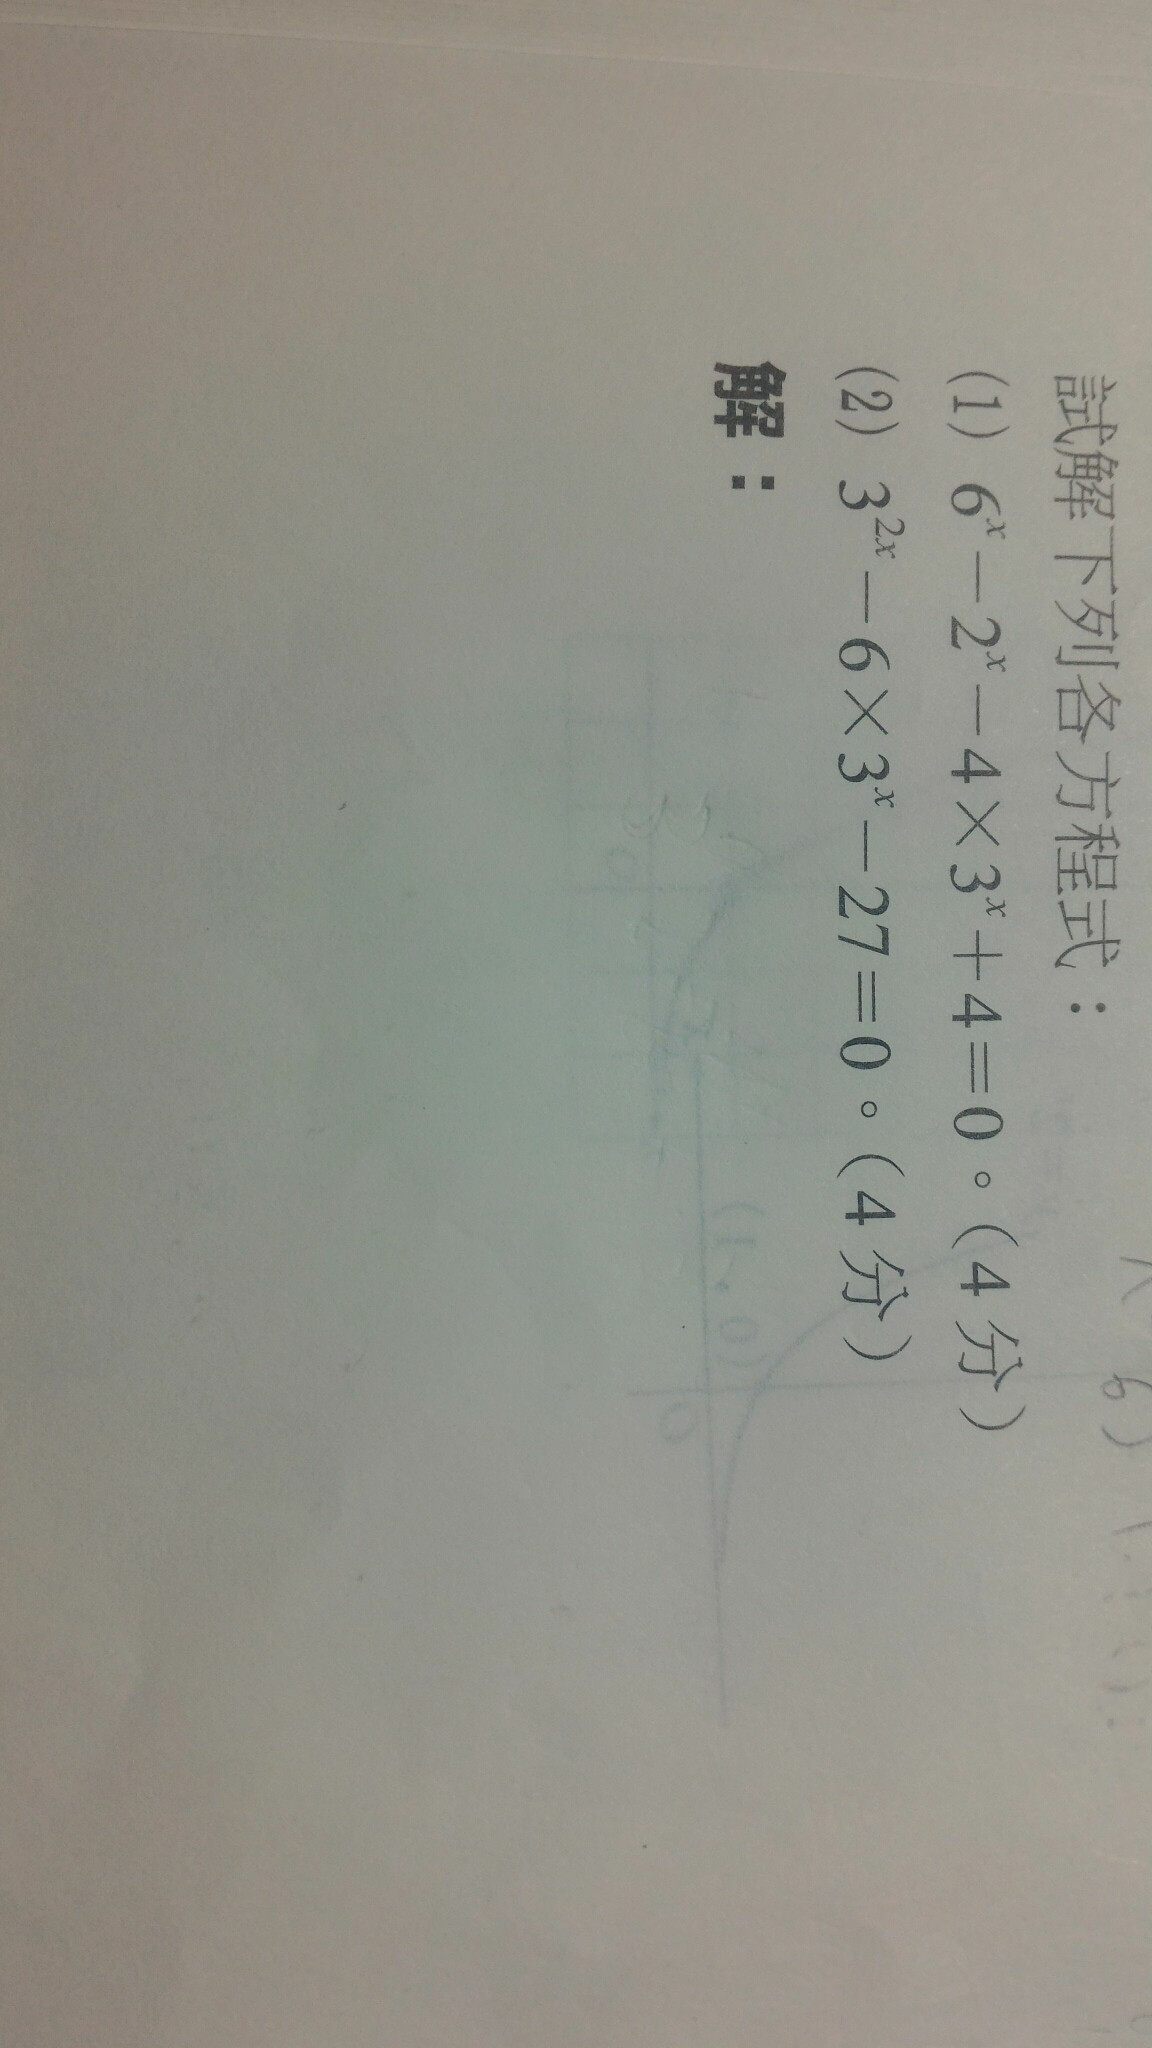 試解下列各方程式：
(1) 6ˣ－2ˣ－4×3ˣ＋4＝0。(4 分)
(2) 3²ˣ－6×3ˣ－27＝0。(4 分)
解：